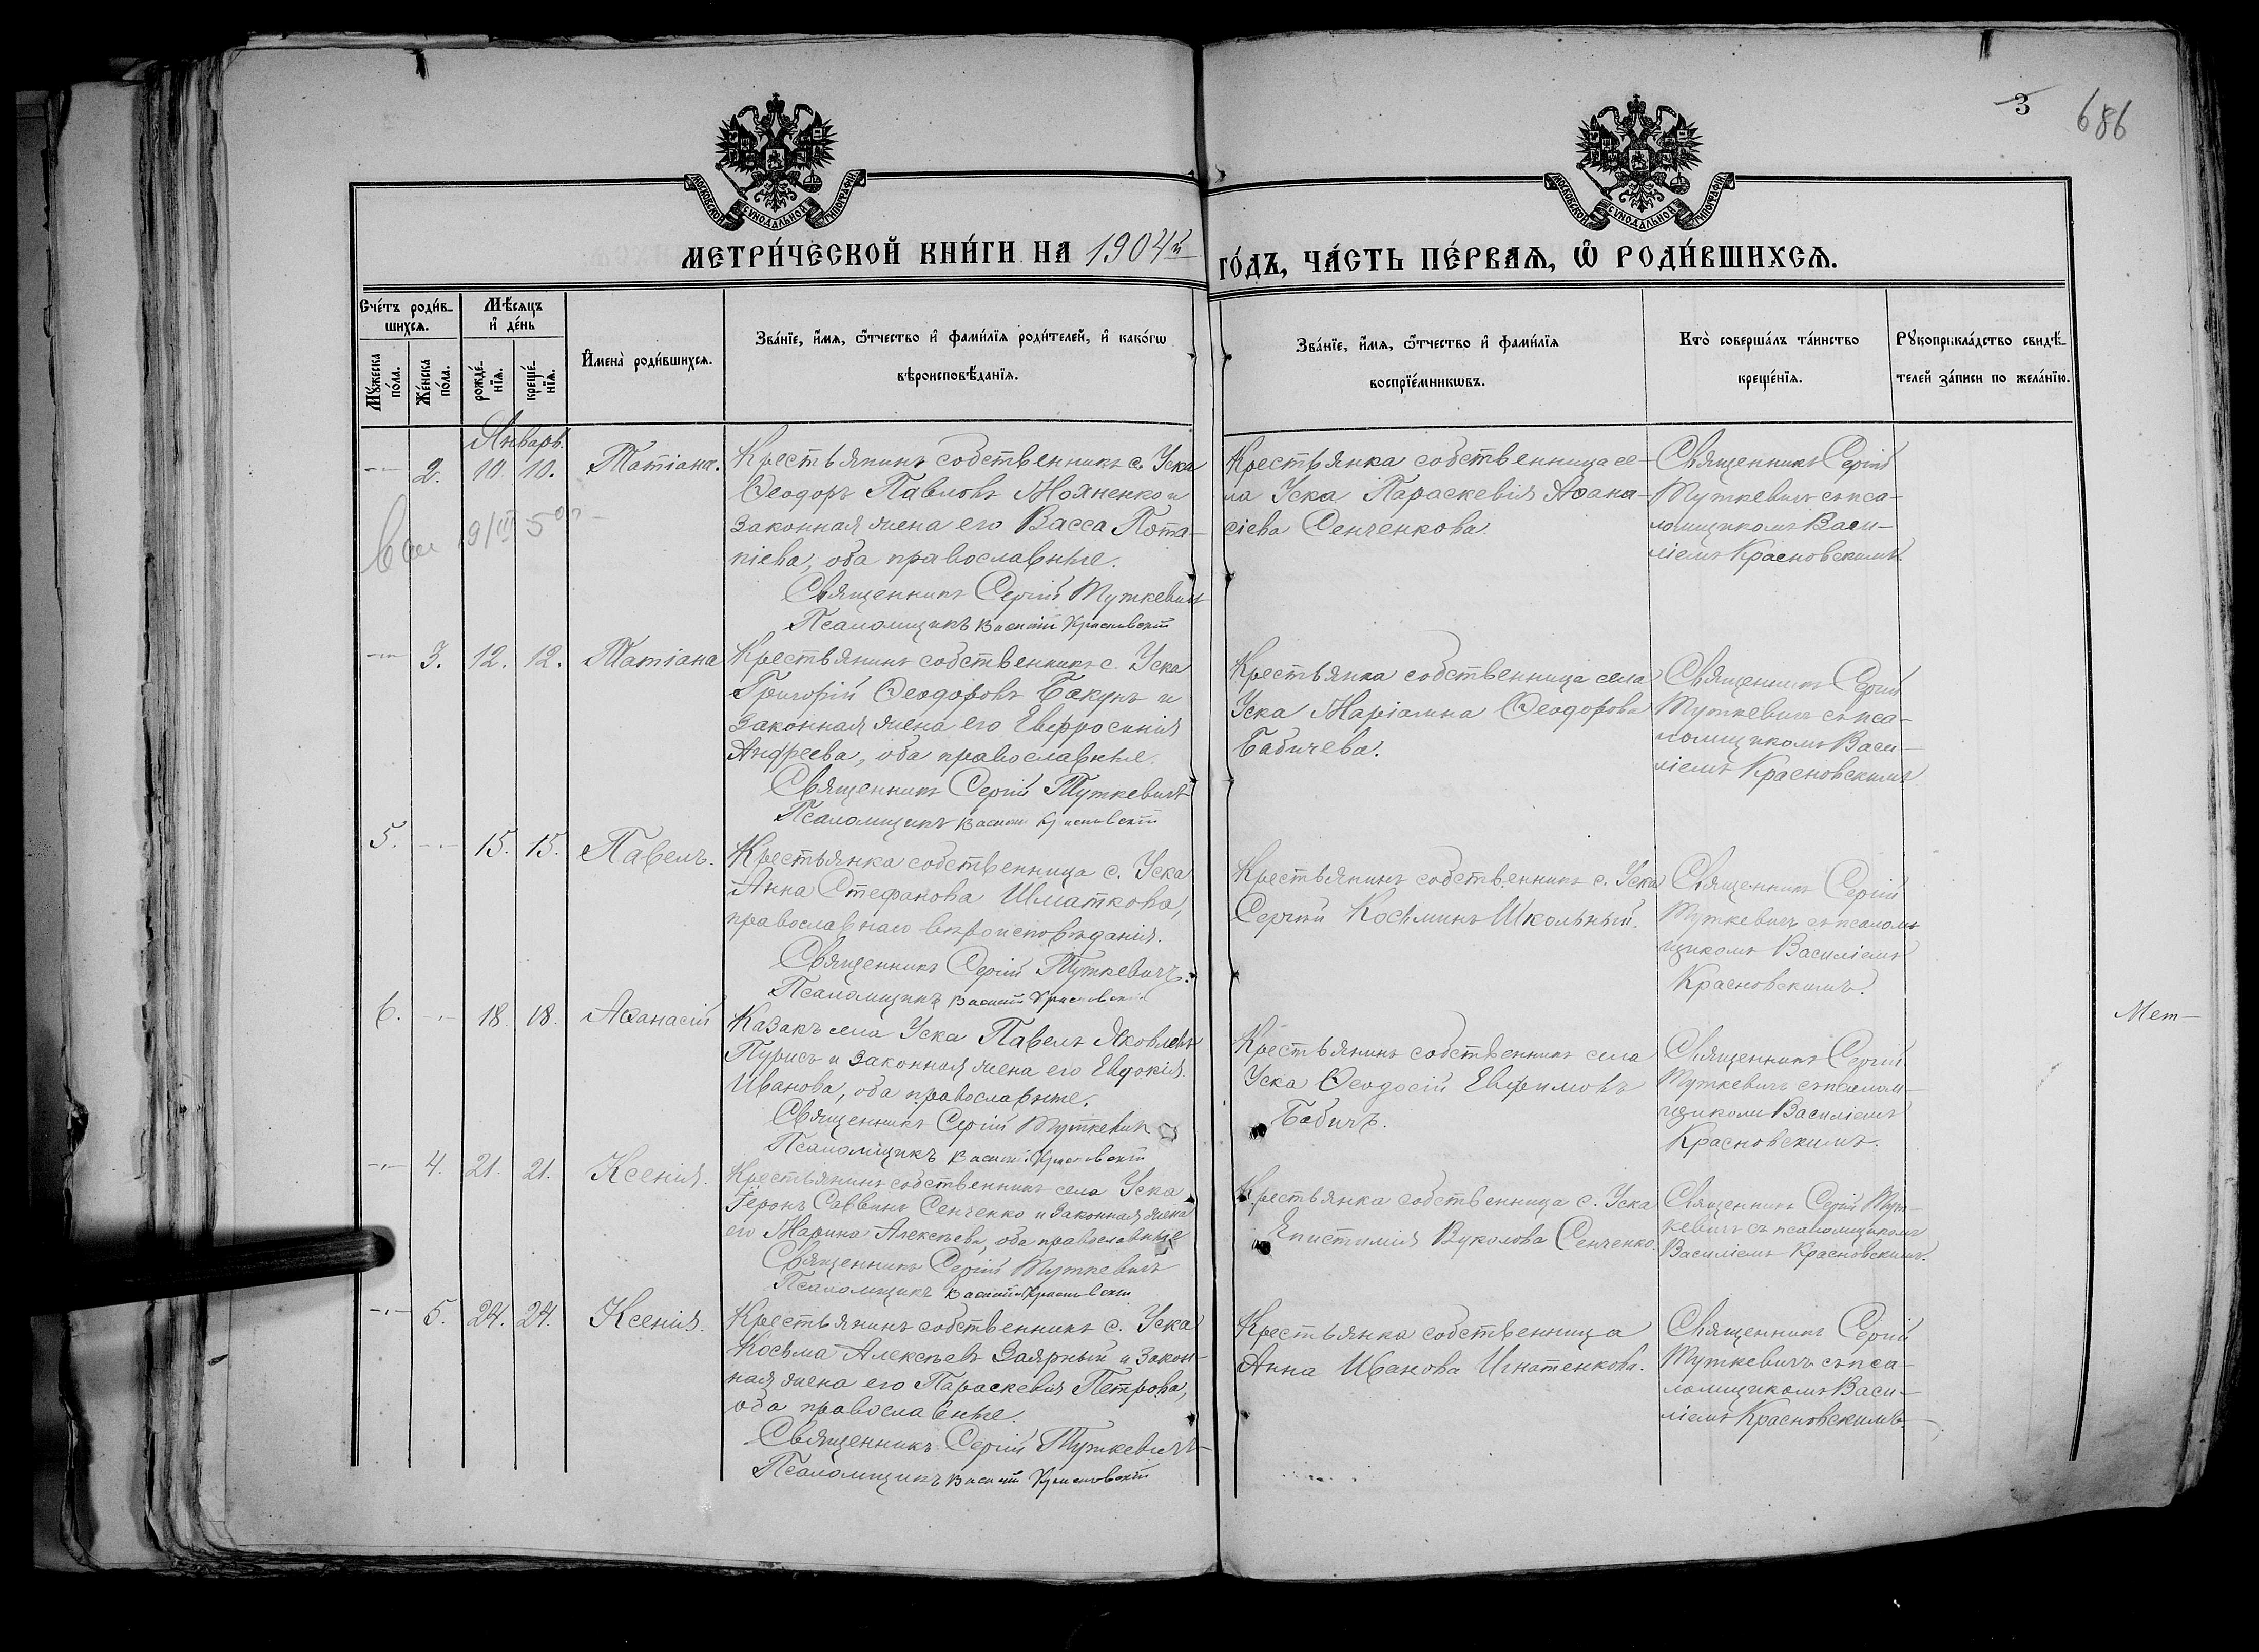 3
686
МОСКОВСКОЙ СѴНОДАЛЬНОЙ ТИПОГРАФІИ
МОСКОВСКОЙ СѴНОДАЛЬНОЙ ТИПОГРАФІИ
МЕТРИ́ЧЕСКОЙ КНИ́ГИ НА 1904й
ГО́ДЪ, ЧА́СТЬ ПЕ́РВАЯ, Ѡ҆ РОДИ́ВШИХСЯ.
Сче́тъ роди́в-
шихся.
Мѣ́сяцъ
и҆ де́нь
Мꙋ́жеска
по́ла.
Же́нска
по́ла.
рожде́-
нїя.
креще́-
нїя.
И҆мена̀ роди́вшихся.
Зва́нїе, и҆́мя, ѻ҆́тчество и҆ фами́лїя роди́телей, и҆ како́гѡ
вѣроисповѣ́данїя.
Зва́нїе, и҆́мя, ѻ҆́тчество и҆ фами́лїя
воспрїе́мникѡвъ.
Кто̀ соверша́лъ та́инство
креще́нїя.
Рꙋкоприкла́дство свидѣ́-
телей за́писи по жела́нїю.
Январь.
2. 10. 10. Татіана.
Крестьянинъ собственникъ с. Уска
Ѳеодоръ Павловъ Махненко и
законная жена его Васса Пота-
піева, оба православные.
Священникъ Сергій Туткевичъ
Псаломщикъ Василій Красновскій
Крестьянка собственница се-
ла Уска Параскевія Аѳана-
сіева Сенченкова.
Священникъ Сергій
Туткевичъ съ пса-
ломщикомъ Васи-
ліемъ Красновскимъ.
19/III 5
3. 12. 12. Татіана
Крестьянинъ собственникъ с. Уска
Григорій Ѳеодоровъ Бакунъ и
законная жена его Евфросинія
Андреева, оба православные.
Священникъ Сергій Туткевичъ
Псаломщикъ Василій Красновскій
Крестьянка собственница села
Уска Маріамна Ѳеодорова
Бабичева.
Священникъ Сергій
Туткевичъ съ пса-
ломщикомъ Васи-
ліемъ Красновскимъ
5. 15. 15. Павелъ.
Крестьянка собственница с. Уска
Анна Стефанова Шматкова,
православнаго вѣроисповѣданія.
Священникъ Сергій Туткевичъ.
Псаломщикъ Василій Красновскій
Крестьянинъ собственникъ с. Уска
Сергій Косьминъ Школьный.
Священникъ Сергій
Туткевичъ съ псалом-
щикомъ Василіемъ
Красновскимъ.
6. 18. 18. Аѳанасій
Казакъ села Уска Павелъ Яковлевъ
Пурисъ и законная жена его Евдокія
Иванова, оба православные.
Священникъ Сергій Туткевичъ
Псаломщикъ Василій Красновскій
Крестьянинъ собственникъ села
Уска Ѳеодосій Евфимовъ
Бабичъ.
Священникъ Сергій
Туткевичъ съ псалом-
щикомъ Василіемъ
Красновскимъ.
Мет-
4. 21. 21. Ксенія.
Крестьянинъ собственникъ села Уска
Іеронъ Саввинъ Сенченко и законная жена
его Марина Алексѣева, оба православные
Священникъ Сергій Туткевичъ
Псаломщикъ Василій Красновскій
Крестьянка собственница с. Уска
Епистимія Вуколова Сенченко.
Священникъ Сергій Тут-
кевичъ съ псаломщикомъ
Василіемъ Красновскимъ.
5. 24. 24. Ксенія.
Крестьянинъ собственникъ с. Уска
Косьма Алексѣевъ Заярный и закон-
ная жена его Параскевія Петрова,
оба православные.
Священникъ Сергій Туткевичъ
Псаломщикъ Василій Красновскій
Крестьянка собственница
Анна Иванова Игнатенкова.
Священникъ Сергій
Туткевичъ съ пса-
ломщикомъ Васи-
ліемъ Красновскимъ.